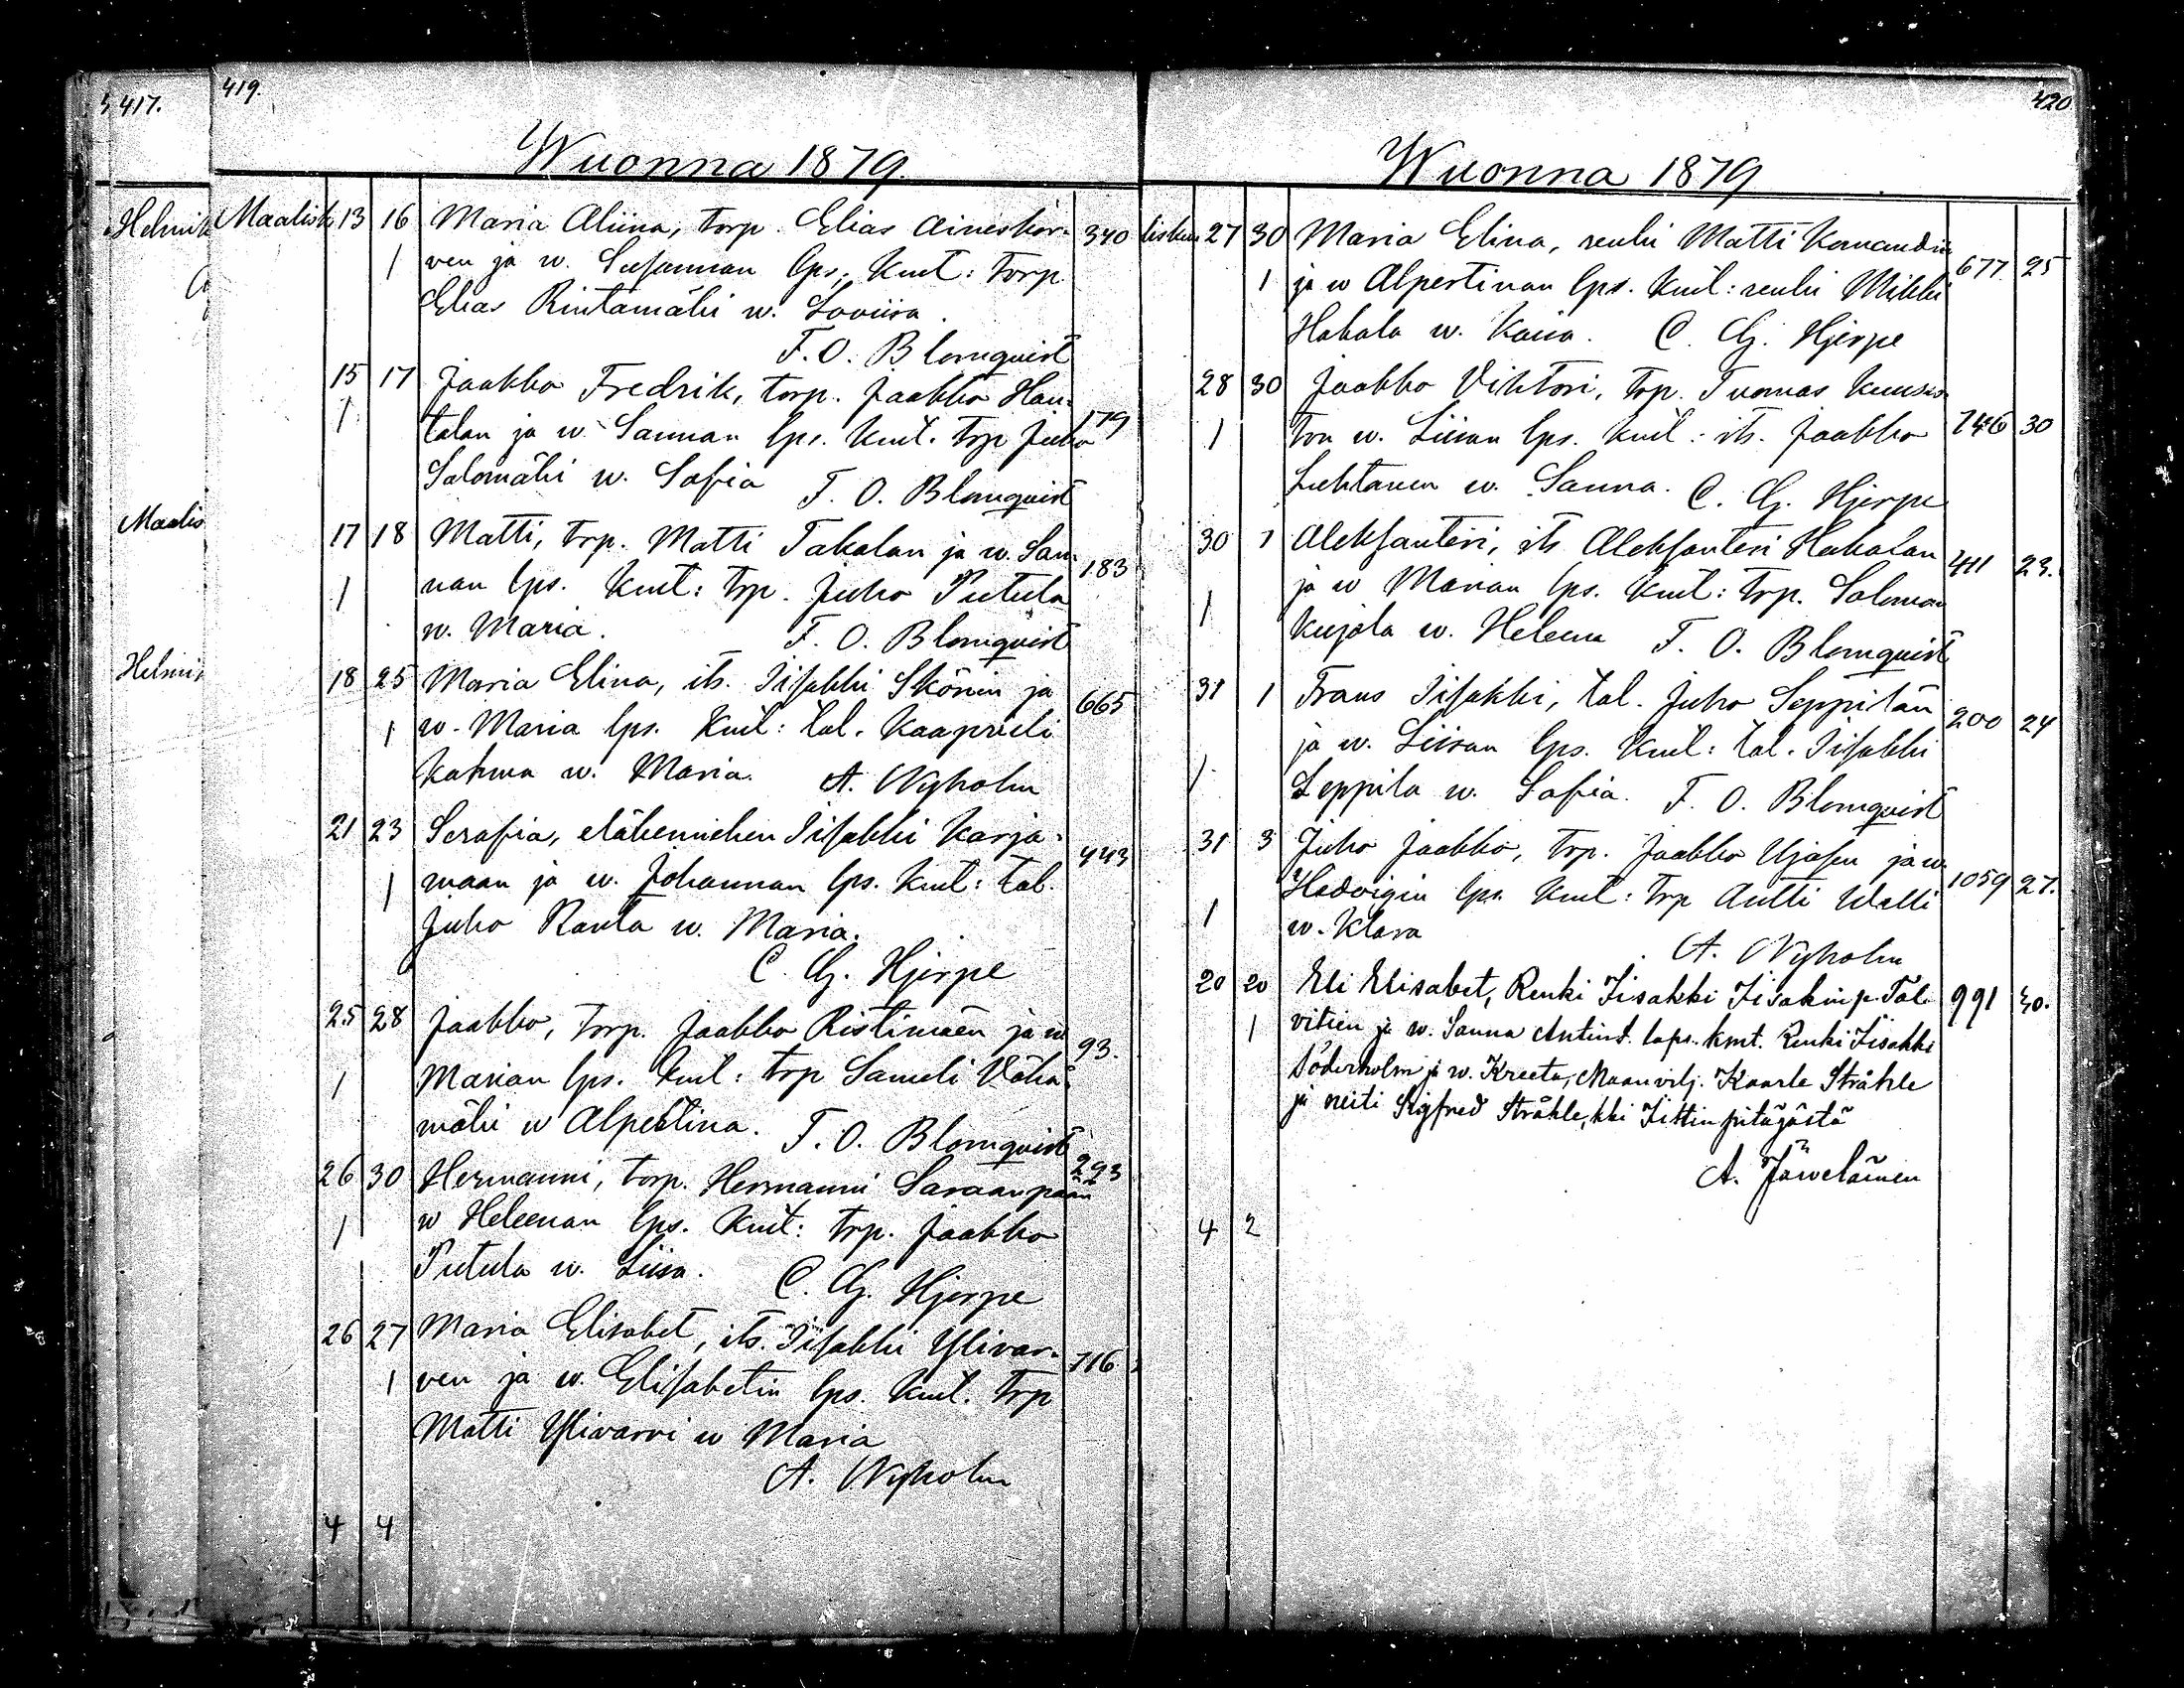 417.
Helmik
Maalis
Helmi
419.
Wuonna 1879.
Maalisk 13 16 Maria Aliina, torp. Elias Aineskor- 340
1 ven ja w. Susannan lps. Kmt: Torp
Elias Rintamäki w. Loviisa.
F. O. Blomquist
15 17 Jaakko Fredrik, torp. Jaakko Han-
1 talan ja w. Sannan lps. Kmt. Trp Juho 179
Salomäki w. Sofia F. O. Blomquist
17 18 Matti, trp. Matti Takalan ja w. San- 183
1 nan lps. Kmt: trp. Juho Putula
w. Maria. F. O. Blomquist
18 25 Maria Elina, its. Iisakki Skönin ja 665
1 w. Maria lps. Kmt: tal. Kaaprieli
Kahma w. Maria. A. Nyholm
21 23 Serafia, eläkemiehen Iisakki Karja- 443
1 maan ja w. Johannan lps. Kmt: tal.
Juho Ranta w. Maria.
C. G. Hjerpe
25 28 Jaakko, torp. Jaakko Ristimäen ja w 93.
1 Marian lps. Kmt: trp Sameli Vähä-
mäki w Alpertina. F. O. Blomquist
26 30 Hermanni, torp. Hermanni Saraanpään 293
1 w Heleenan lps. Kmt: trp. Jaakko
Putula w. Liisa. C. G. Hjerpe
26 27 Maria Elisabet, its. Iisakki Ylivar- 716
1 ven ja w. Elisabetin lps. Kmt. Trp
Matti Ylivarvi w Maria
A. Nyholm
4 4
420
Wuonna 1879
lisku 27 30 Maria Elina, renki Matti Komandin 677 25
1 ja w Alpertinan lps. Kmt: renki Mikki
Hakala w. Kaisa. C. G. Hjerpe
28 30 Jaakko Vihtori, trp. Tuomas Kuusis-
1 ton w. Liisan lps. Kmt: its. Jaakko 746 30
Luhtanen w. Sanna. C. G. Hjerpe
30 1 Aleksanteri, its Aleksanteri Hakalan 411 23.
1 ja w Marian lps. Kmt: trp. Saloman
Kujala w. Heleena F. O. Blomquist
31 1 Frans Iisakki, tal. Juho Seppilän 200 24
1 ja w. Liisan lps. Kmt: tal. Iisakki
Seppila w. Sofia. F. O. Blomquist
31 3 Juho Jaakko, trp. Jaakko Ujasen ja w. 1059 27.
1 Hedvigin lps. Kmt: trp Antti Walli
w. Klara
A. Nyholm
20 20 Eli Elisabet, Renki Iisakki Iisakinp. Tal- 991 30.
1 vitien ja w. Sanna Antint. laps. kmt. Renki Iisakki
Söderholm ja w. Kreeta, Maanvilj. Kaarle Stråhle
ja neiti Sigfred Stråhle, kki Iittin pitäjästä
A. Jäweläinen
4 2